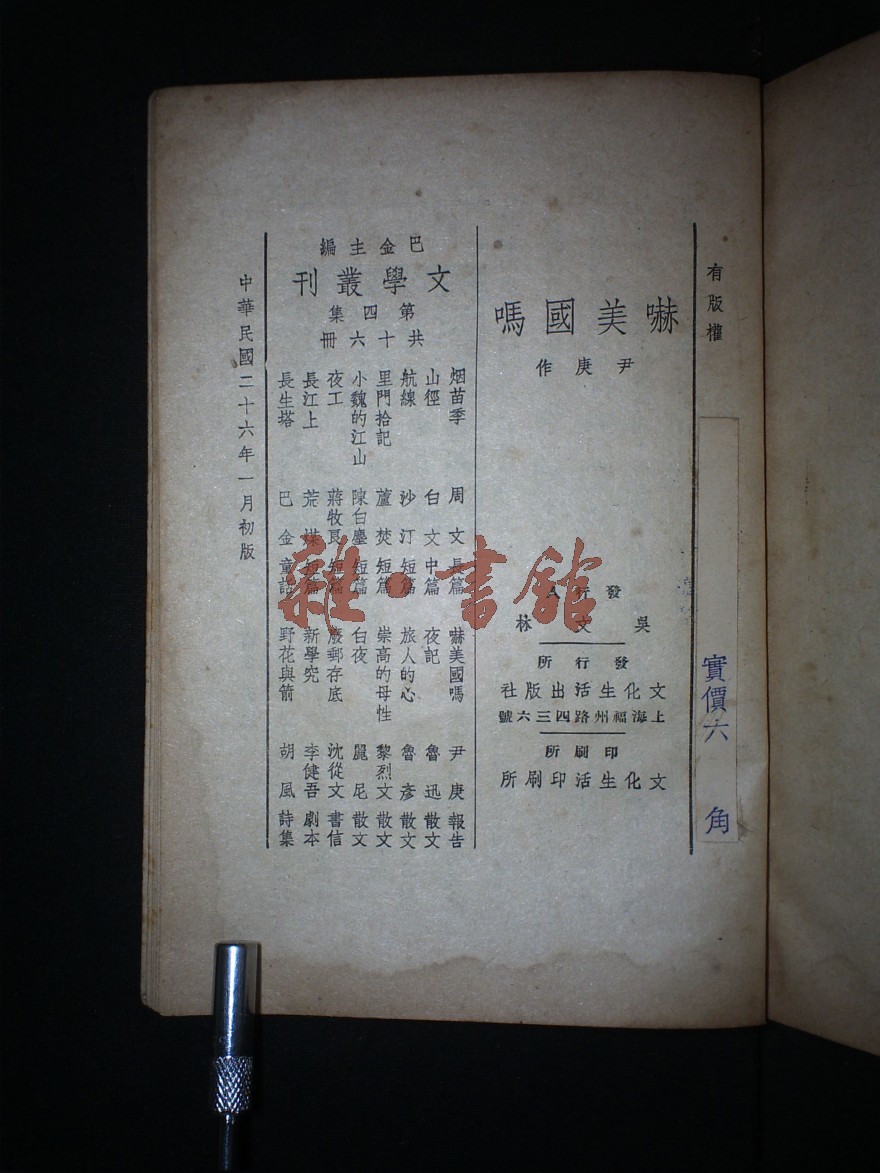 有版權
實價六角
嚇美國嗎
尹庚作
發行人
吳文林
發行所
文化生活出版社
上海福州路四三六號
印刷所
文化生活印刷所
巴金主編
文學叢刊
第四集
共十六冊
烟苗季 周文 長篇 嚇美國嗎 尹庚 報告
山徑 白文 中篇 夜記 魯迅 散文
航線 沙汀 短篇 旅人的心 魯彥 散文
里門拾記 蘆焚 短篇 崇高的母性 黎烈文 散文
小魏的江山 陳白塵 短篇 白夜 麗尼 散文
夜工 蔣牧良 短篇 廢郵存底 沈從文 書信
長江上 荒煤 短篇 新學究 李健吾 劇本
長生塔 巴金 童話 野花與箭 胡風 詩集
中華民國二十六年一月初版
雜·書館